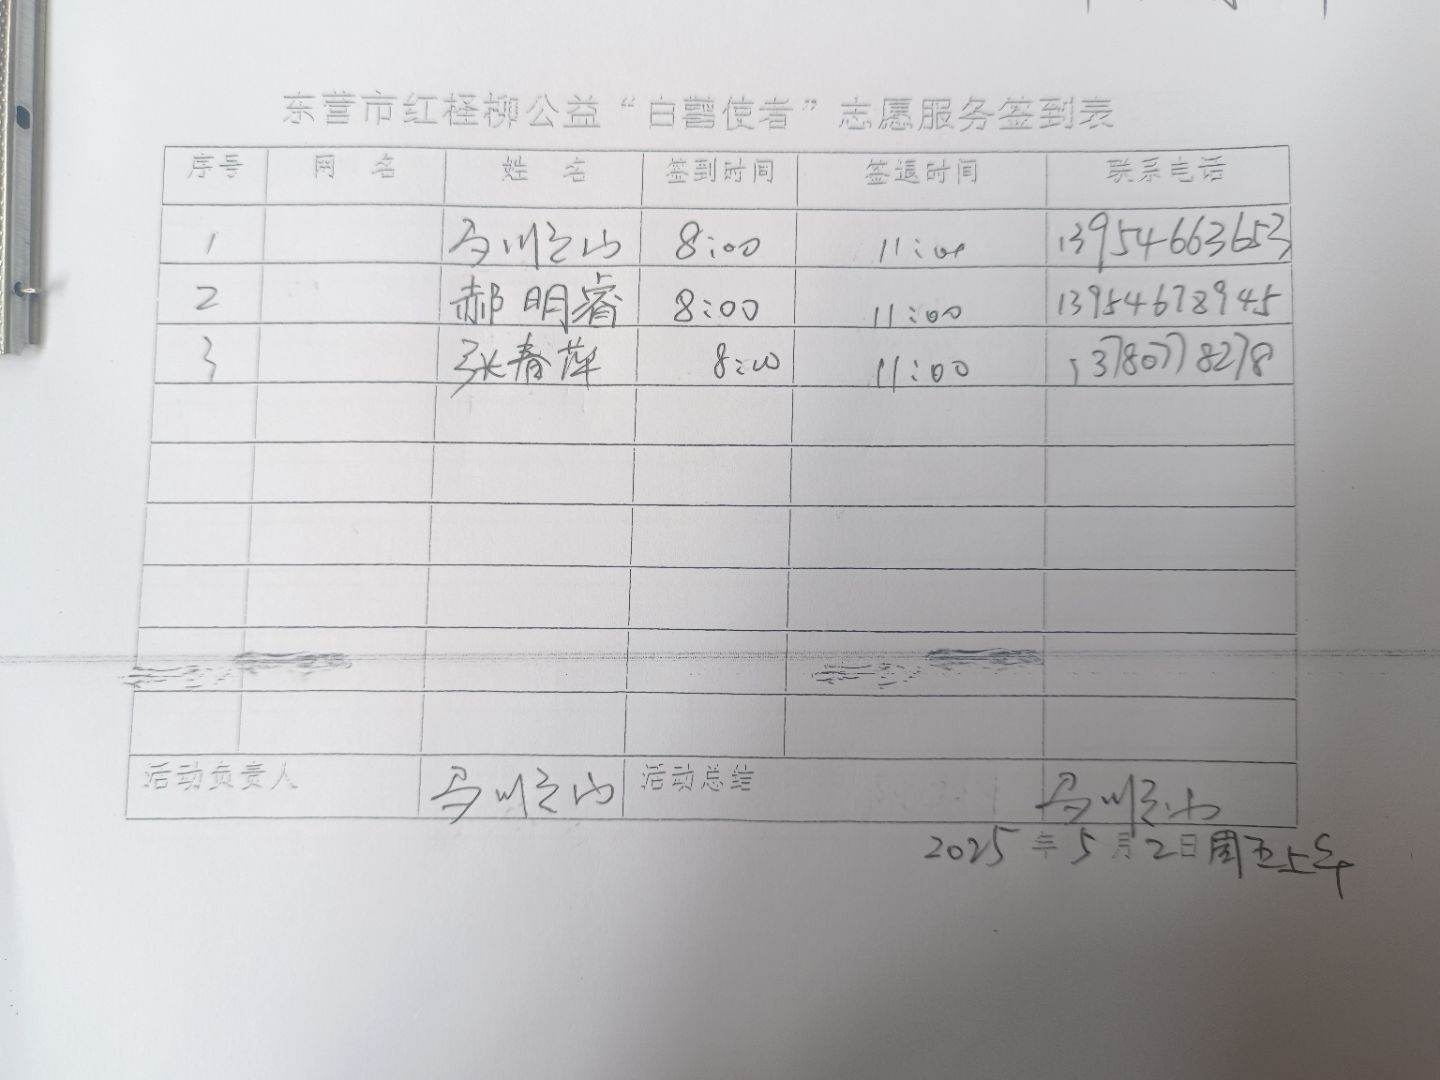 东营市红柽柳公益“白鹭使者”志愿服务签到表
序号 网 名 姓 名 签到时间 签退时间 联系电话
1 马顺之山 8:00 11:00 13954663653
2 郝明睿 8:00 11:00 13954678945
3 张春萍 8:00 11:00 13780778278
活动负责人 马 活动总结 马
2025年5月2日周五上午